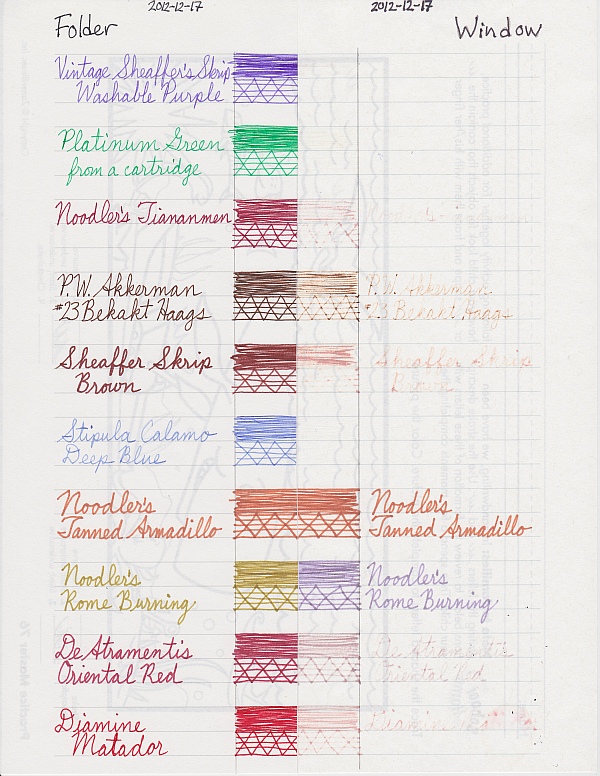 2012-12-17 2012-12-17
Folder Window
Vintage Sheaffer's Skrip
Washable Purple
Platinum Green
from a cartridge
Noodler's Tiananmen
P.W. Akkerman P.W. Akkerman
#23 Bekakt Haags #23 Bekakt Haags
Sheaffer Skrip Sheaffer Skrip
Brown Brown
Stipula Calamo
Deep Blue
Noodler's Noodler's
Tanned Armadillo Tanned Armadillo
Noodler's Noodler's
Rome Burning Rome Burning
De Atramentis De Atramentis
Oriental Red Oriental Red
Diamine Diamine
Matador